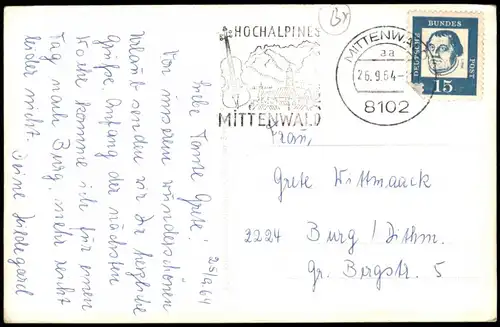 Br
HOCHALPINES
MITTENWALD
MITTENWALD
aa
26.9.64
8102
DEUTSCHE
BUNDES
POST
15
25/9.64
Liebe Tante Grete!
Von unserem wunderschönen
Urlaub senden wir Dir herzliche
Grüße. Anfang der nächsten
Woche komme ich für einen
Tag nach Burg, mehr reicht
leider nicht.
Deine Hildegard
Frau,
Grete Wittmaack
2224 Burg/Dithm.
Gr. Bergstr. 5